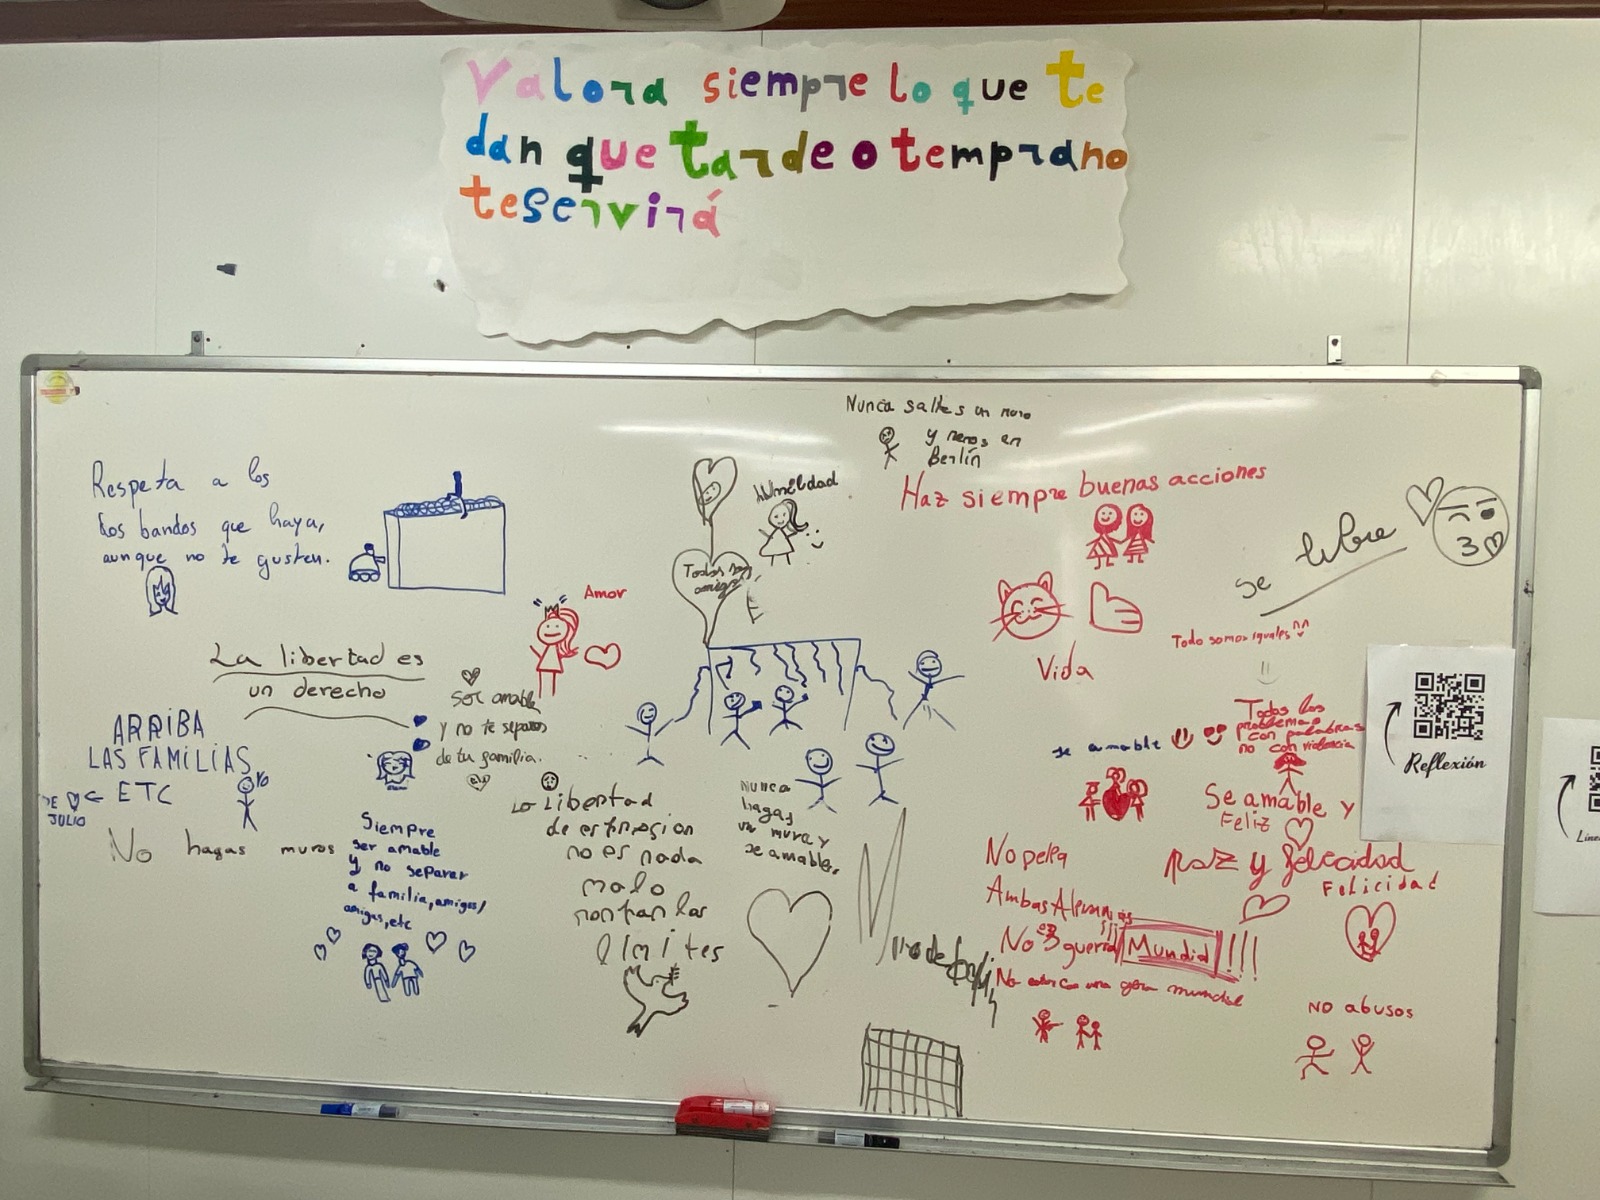 Valora siempre lo que te
dan que tarde o temprano
te servirá
Nunca saltes un muro
y menos en
Berlín
Haz siempre buenas acciones
Respeta a los
dos bandos que haya,
aunque no te gusten.
humildad
Todos
amigos
Amor
se libre
Todo somos iguales
Vida
La libertad es
un derecho
ser amable
y no te separes
de tu familia.
ARRIBA
LAS FAMILIAS
ETC
DE
JULIO
No hagas muros
Siempre
ser amable
y no separar
a familia, amigos/
amigas, etc
La libertad
de expresion
no es nada
malo
pontan los
limites
Nunca
hagas
un muro y
se amable.
se amable
Todos los
problemas
con palabras
no con violencia
Se amable y
Feliz
Paz y felicidad
Felicidad
No pelea
Ambas Alemanias
No 3 guerra Mundial !!!
mundial
No abusos
Reflexión